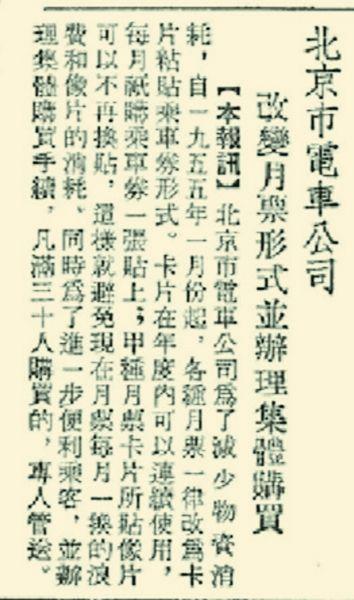 北京市電車公司
改變月票形式並辦理集體購買
【本報訊】北京市電車公司爲了減少物資消
耗，自一九五五年一月份起，各種月票一律改爲卡
片粘貼乘車券形式。卡片在年度內可以連續使用，
每月祇購乘車券一張貼上；甲種月票卡片所貼像片
可以不再換貼，這樣就避免現在月票每月一換的浪
費和像片的消耗。同時爲了進一步便利乘客，並辦
理集體購買手續，凡滿三十人購買的，專人管送。